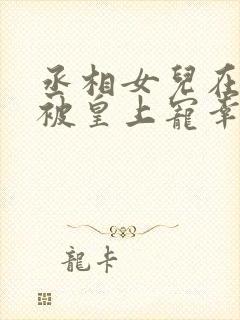 丞相女兒在
被皇上寵幸
龍卡